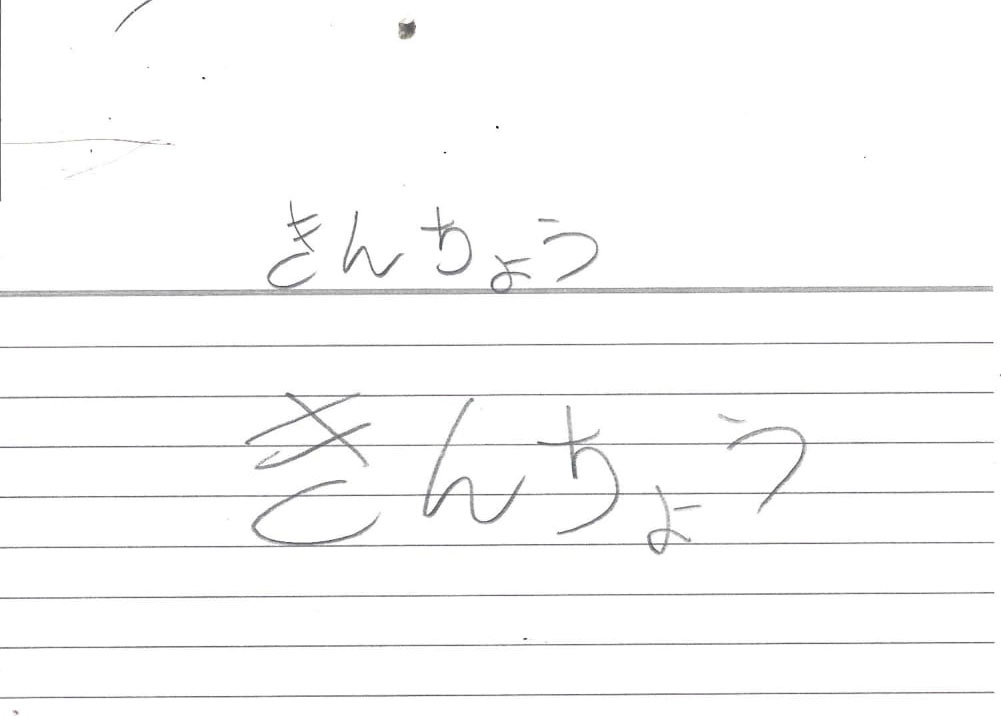 きんちょう
きんちょう